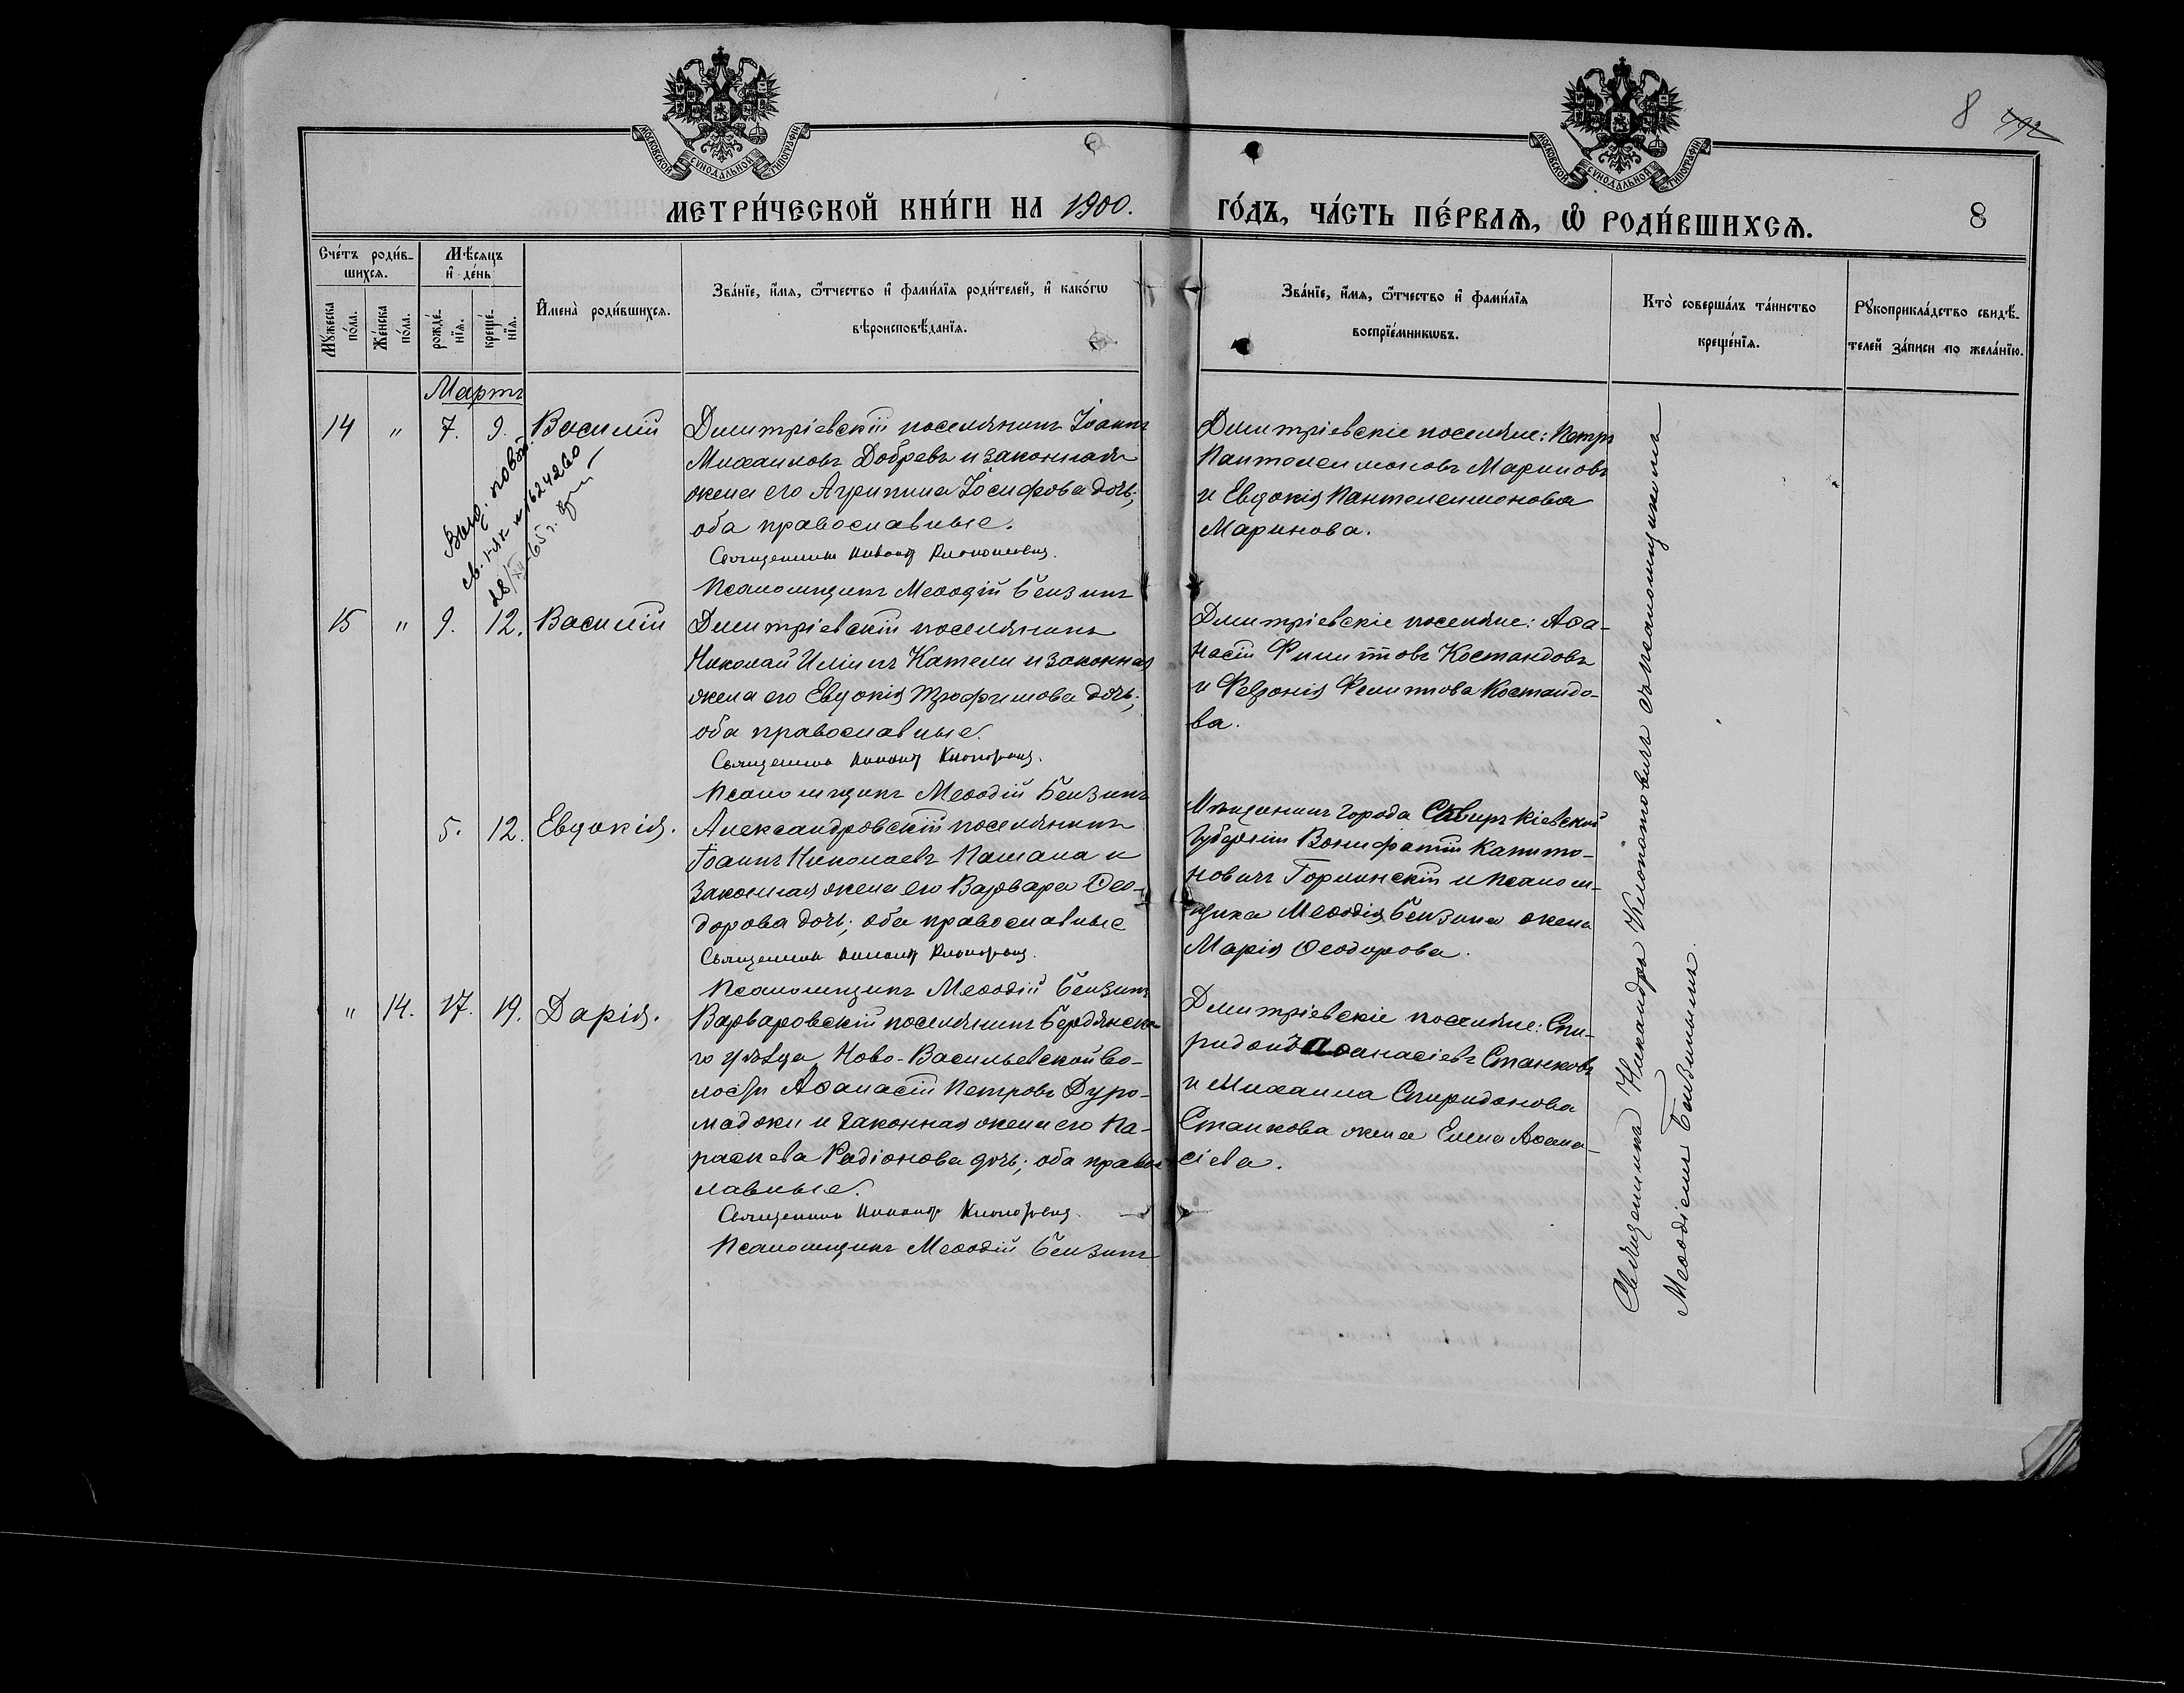 8 492
МОСКОВСКОЙ СУНОДАЛЬНОЙ ТИПОГРАФІИ
МОСКОВСКОЙ СУНОДАЛЬНОЙ ТИПОГРАФІИ
МЕТРИ́ЧЕСКОЙ КНИ́ГИ НА 1900. ГО́ДЪ, ЧА́СТЬ ПЕ́РВАѦ, Ѡ РОДИ́ВШИХСѦ. 8
Сче́тъ роди́в-
шихся.
Мꙋ́жеска по́ла.
Же́нска по́ла.
Мѣ́сяцъ и де́нь
рожде́-нїя.
креще́-нїя.
Имена̀ роди́вшихся.
Зва́нїе, и́мя, ѻ́тчество и фами́лїя роди́телей, и како́гѡ
вѣроисповѣ́данїя.
Зва́нїе, и́мя, ѻ́тчество и фами́лїя
воспрїе́мникѡвъ.
Кто̀ соверша́лъ та́инство
креще́нїя.
Рꙋкоприкла́дство свидѣ́-
телей за́писи по жела́нїю.
Мартъ
14 " 7. 9. Василій
Димитріевскій поселянинъ Іоаннъ
Михаиловъ Добревъ и законная
жена его Агрипина Іосифова дочь;
оба православные.
Священникъ Никандр Клопотович
Псаломщикъ Меѳодій Бензинъ
Димитріевскіе поселяне: Петръ
Пантелеимоновъ Мариновъ
и Евдокія Пантелеимонова
Маринова.
Выд. повт.
св. № 1624260
28/XII-65 г.
15 " 9. 12. Василій
Димитріевскій поселянинъ
Николай Иліинъ Кателли и законная
жена его Евдокія Трофимова дочь;
оба православные.
Священник Никандр Клопотович.
Псаломщикъ Меѳодій Бензинъ
Димитріевскіе поселяне: Аѳа-
насій Филипповъ Костандовъ
и Февронія Филиппова Костандо-
ва.
5. 12. Евдокія.
Александровскій поселянинъ
Іоаннъ Николаевъ Пашала и
законная жена его Варвара Ѳео-
дорова дочь; оба православные
Священник Никандр Клопотович.
Псаломщикъ Меѳодій Бензинъ
Мѣщанинъ города Сквиръ Кіевской
губерніи Вонифатій Капито-
новичъ Горлинскій и псалом-
щика Меѳодія Бензина жена
Марія Ѳеодорова.
" 14. 17. 19. Дарія.
Варваровскій поселянинъ Бердянска-
го уѣзда, Ново-Васильевской во-
лости Аѳанасій Петровъ Дуро-
маджи и законная жена его Па-
раскева Радіонова дочь; оба право-
славные.
Священник Никандр Клопотович
Псаломщикъ Меѳодій Бензинъ
Димитріевскіе поселяне: Спи-
ридонъ Аѳанасіевъ Станковъ
и Михаила Спиридонова
Станкова жена Елена Аѳана-
сіева.
Священникъ Никандръ Клопотовичъ съ псаломщикомъ
Меѳодіемъ Бензинымъ.